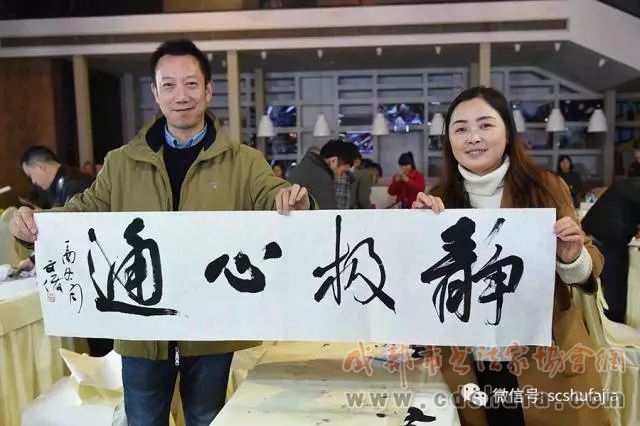 静极心通
成都市书法家协会网
www.cdshufa.com
微信号: scshufajia